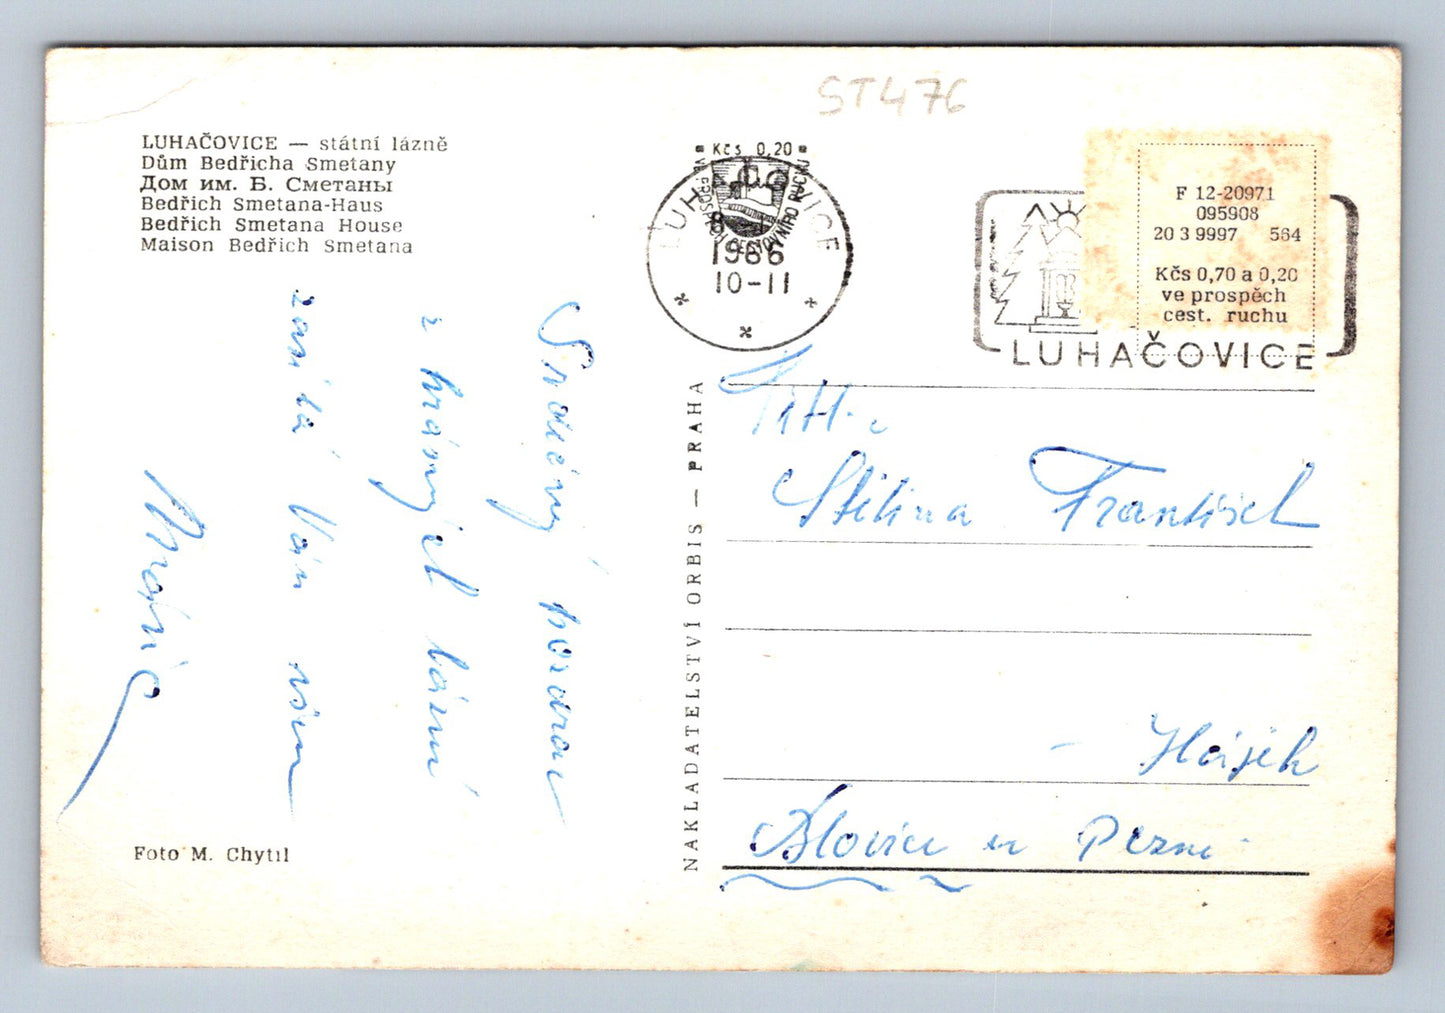 ST476
LUHAČOVICE — státní lázně
Dům Bedřicha Smetany
Дом им. Б. Сметаны
Bedřich Smetana-Haus
Bedřich Smetana House
Maison Bedřich Smetana
Kčs 0,20
VE PROSPĚCH CESTOVNÍHO RUCHU
LUHAČOVICE
8
1966
10-11
LUHAČOVICE
F 12-20971
095908
20 3 9997 564
Kčs 0,70 a 0,20
ve prospěch
cest. ruchu
Srdečný pozdrav
z krásných lázní
zasílá Vám všem
Marie
NAKLADATELSTVÍ ORBIS — PRAHA
František
Hájek
Blovice u Plzně
Foto M. Chytil